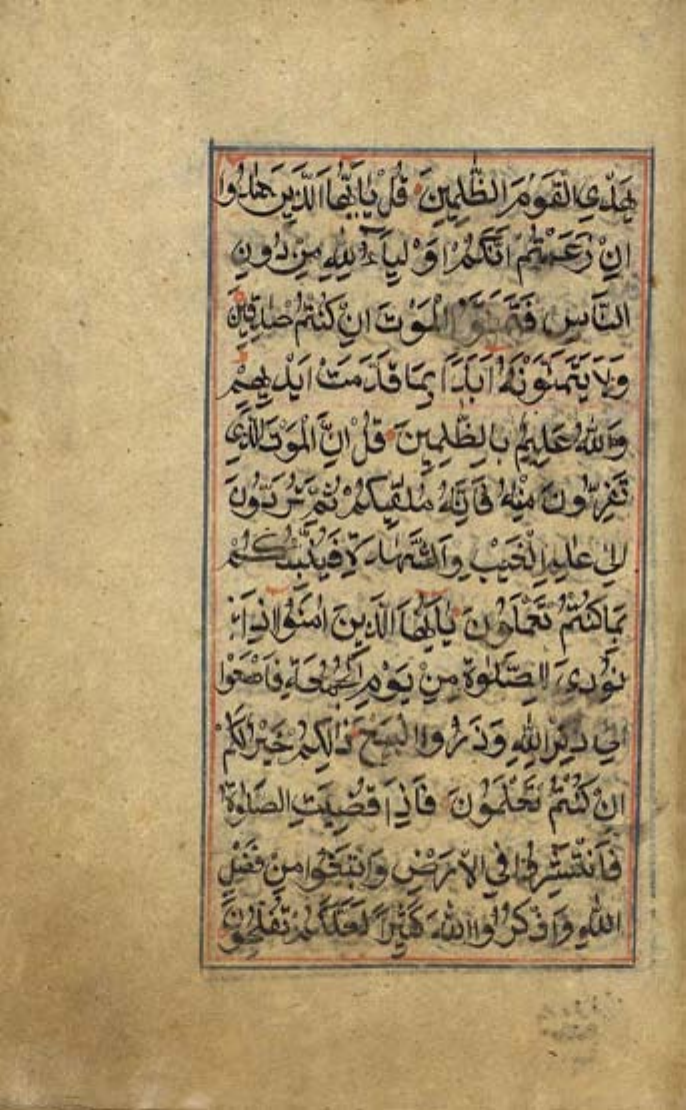 يَهْدِي الْقَوْمَ الظّٰلِمِينَ قُلْ يَا اَيُّهَا الَّذِينَ هَادُوا
اِنْ زَعَمْتُمْ اَنَّكُمْ اَوْلِيَآءُ لِلّٰهِ مِنْ دُونِ
النَّاسِ فَتَمَنَّوُا الْمَوْتَ اِنْ كُنْتُمْ صٰدِقِينَ
وَلَا يَتَمَنَّوْنَهُ اَبَدًا بِمَا قَدَّمَتْ اَيْدِيهِمْ
وَاللّٰهُ عَلِيمٌ بِالظّٰلِمِينَ قُلْ اِنَّ الْمَوْتَ الَّذِي
تَفِرُّونَ مِنْهُ فَاِنَّهُ مُلٰقِيكُمْ ثُمَّ تُرَدُّونَ
اِلٰى عَالِمِ الْغَيْبِ وَالشَّهَادَةِ فَيُنَبِّئُكُمْ
بِمَا كُنْتُمْ تَعْمَلُونَ يَا اَيُّهَا الَّذِينَ اٰمَنُوا اِذَا
نُودِيَ لِلصَّلٰوةِ مِنْ يَوْمِ الْجُمُعَةِ فَاسْعَوْا
اِلٰى ذِكْرِ اللّٰهِ وَذَرُوا الْبَيْعَ ذٰلِكُمْ خَيْرٌ لَكُمْ
اِنْ كُنْتُمْ تَعْلَمُونَ فَاِذَا قُضِيَتِ الصَّلٰوةُ
فَانْتَشِرُوا فِي الْاَرْضِ وَابْتَغُوا مِنْ فَضْلِ
اللّٰهِ وَاذْكُرُوا اللّٰهَ كَثِيرًا لَعَلَّكُمْ تُفْلِحُونَ